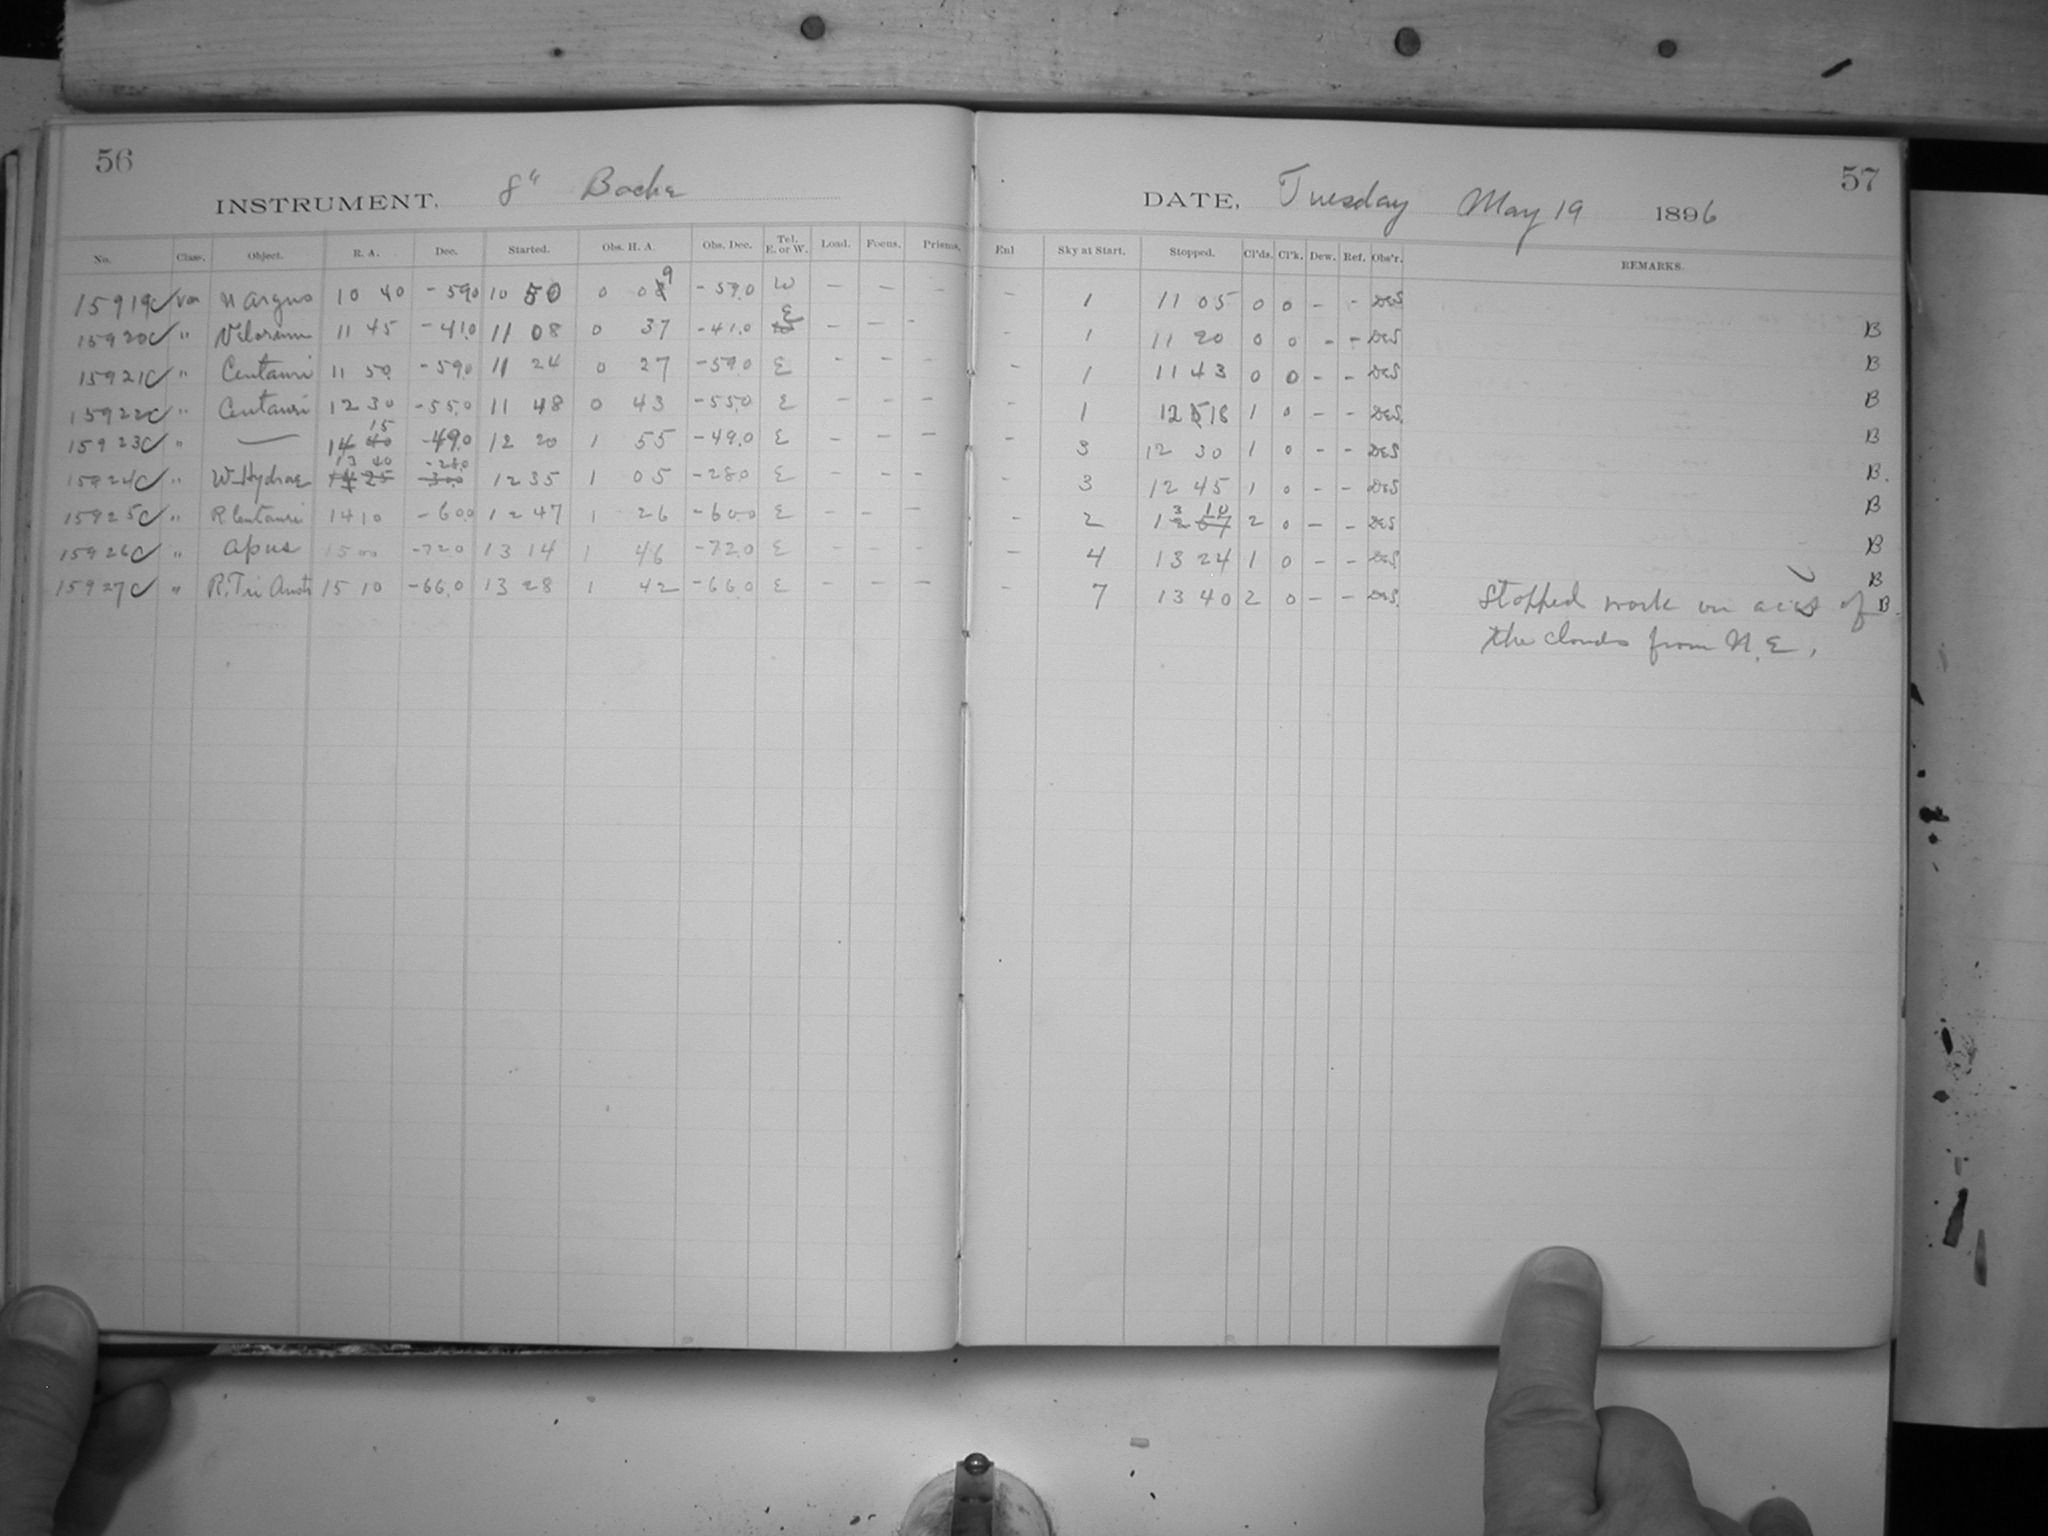 56
INSTRUMENT. 8" Bache
No. Class. Object. R. A. Dec. Started. Obs. H. A. Obs. Dec. Tel. E. or W. Load. Focus. Prisms.
15919C✓ Var N Argus 10 40 -59.0 10 50 0 09 -59.0 W - - -
15920C✓ " Velorum 11 45 -41.0 11 08 0 37 -41.0 E - - -
15921C✓ " Centauri 11 50 -59.0 11 24 0 27 -59.0 E - - -
15922C✓ " Centauri 12 30 -55.0 11 48 0 43 -55.0 E - - -
15923C✓ " — 14 40 15 -49.0 12 20 1 55 -49.0 E - - -
15924C✓ " W Hydrae 14 25 13 40 -30.0 -28.0 12 35 1 05 -28.0 E - - -
15925C✓ " R Centauri 14 10 -60.0 12 47 1 26 -60.0 E - - -
15926C✓ " Apus 15 00 -72.0 13 14 1 46 -72.0 E - - -
15927C✓ " R. Tri Austr 15 10 -66.0 13 28 1 42 -66.0 E - - -
57
DATE, Tuesday May 19 1896
Enl Sky at Start. Stopped. Cl'ds. Cl'k. Dew. Ref. Obs'r. REMARKS.
- 1 11 05 0 0 - - DES
- 1 11 20 0 0 - - DES B
- 1 11 43 0 0 - - DES B
- 1 12 18 1 0 - - DES. B
- 3 12 30 1 0 - - DES B
- 3 12 45 1 0 - - DES B.
- 2 13 10 2 0 - - DES B
- 4 13 24 1 0 - - DES B
- 7 13 40 2 0 - - DES. B
Stopped work on acct of B.
the clouds from N.E.